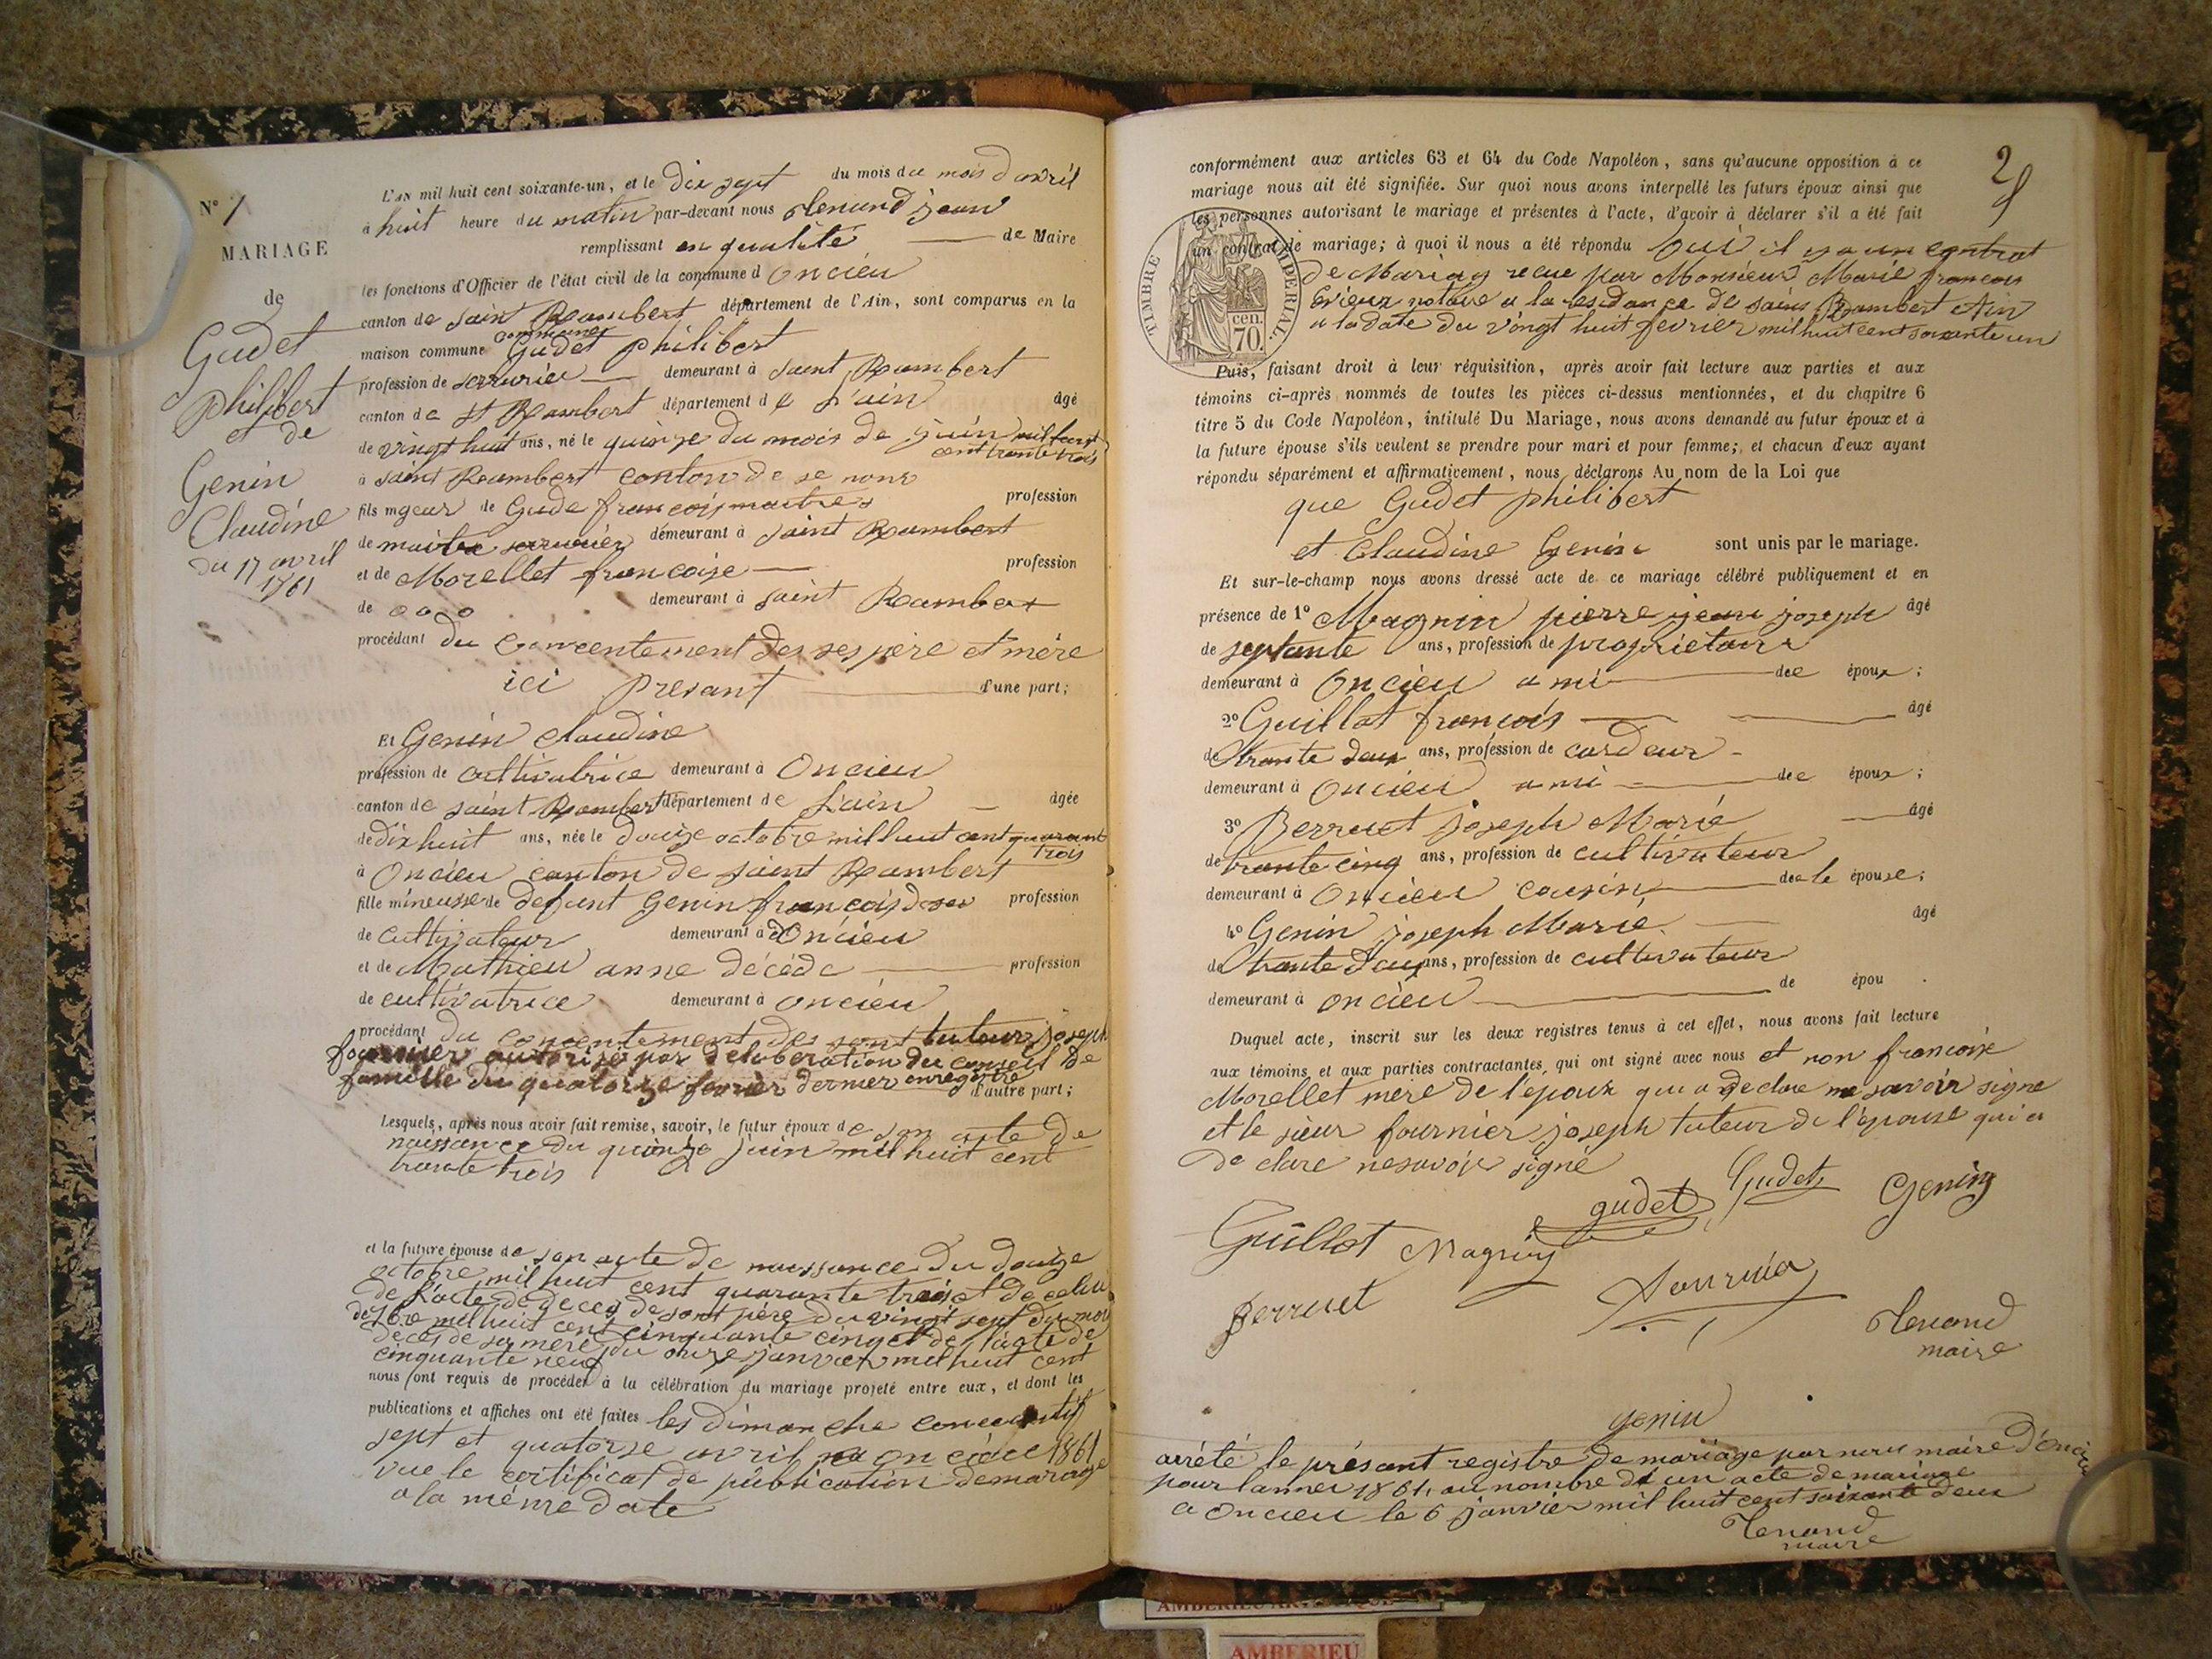 N° 1
MARIAGE
de
Gudet
philibert
et de
Genin
Claudine
du 17 avril
1861
L'an mil huit cent soixante-un, et le dix sept du mois du mois d avril
à huit heure du matin par-devant nous Tenand jean
remplissant en qualité de Maire
les fonctions d'Officier de l'état civil de la commune d Oncieu
canton de saint Rambert département de l'Ain, sont comparus en la
maison commune Gudet philibert
profession de serrurier demeurant à saint Rambert
canton de St Rambert département de L'ain âgé
de vingt huit ans, né le quinze du mois de juin mil huit
cent trente trois
à saint Rambert canton de se nons
fils mgeur de Gude françois maitres profession
de maitre serrurier demeurant à saint Rambert
et de Morellet francoise profession
de o o o demeurant à saint Rambert
procédant du concentement des ses père et mère
ici presant d'une part;
Et Genin claudine
profession de cultivatrice demeurant à Oncieu
canton de saint Rambert département de L'ain âgée
de dix huit ans, née le douze octobre mil huit cent quarant
trois
à Oncieu canton de saint Rambert
fille mineusse de defunt Genin françois profession
de cultivateur demeurant à Oncieu
et de Mathieu anne décède profession
de cultivatrice demeurant à oncieu
procédant du concentement des sont tuteur joseph
fournier autorise par deloberation du conseil de
famille du quatorze fevrier dernier enregistre
d'autre part;
Lesquels, après nous avoir fait remise, savoir, le futur époux de son acte de
naissance du quinze juin mil huit cent
trante trois
et la future épouse de son acte de naissance du douze
octobre mil huit cent quarante trois et de celui
de l'acte de deces de sont père du vingt sept du moi
de 9bre mil huit cent cinquante cinq et de l'acte de
deces de sa mere du onze janvier mil huit cent
cinquante neuf
nous ont requis de procéder à la célébration du mariage projeté entre eux, et dont les
publications et affiches ont été faites les dimanche concecutif
sept et quatorze avril a oncieu 1861
vue le certificat de publication demariage
a la même date
2
conformément aux articles 63 et 64 du Code Napoléon, sans qu'aucune opposition à ce
mariage nous ait été signifiée. Sur quoi nous avons interpellé les futurs époux ainsi que
les personnes autorisant le mariage et présentes à l'acte, d'avoir à déclarer s'il a été fait
un contrat de mariage; à quoi il nous a été répondu Oui il y a un contrat
de Mariag recue par Monsieur Marie francois
notaire a la residance de saint Rambert Ain
a la date du vingt huit fevrier mil huit cent soixante un
TIMBRE IMPERIAL
cen.
70.
Puis, faisant droit à leur réquisition, après avoir fait lecture aux parties et aux
témoins ci-après nommés de toutes les pièces ci-dessus mentionnées, et du chapitre 6
titre 5 du Code Napoléon, intitulé Du Mariage, nous avons demandé au futur époux et à
la future épouse s'ils veulent se prendre pour mari et pour femme; et chacun d'eux ayant
répondu séparément et affirmativement, nous déclarons Au nom de la Loi que
que Gudet philibert
et Claudine Genin sont unis par le mariage.
Et sur-le-champ nous avons dressé acte de ce mariage célébré publiquement et en
présence de 1° Magnin pierre jean joseph âgé
de septante ans, profession de proprietaire
demeurant à Oncieu ami dee époux;
2° Guillot francois âgé
de trante deux ans, profession de cardeur
demeurant à Oncieu ami dee époux;
3° Berruet joseph Marie âgé
de trante cinq ans, profession de cultivateur
demeurant à Oncieu cousin dee le épouse;
4° Genin joseph Marie âgé
de trante deux ans, profession de cultivateur
demeurant à oncieu de épou .
Duquel acte, inscrit sur les deux registres tenus à cet effet, nous avons fait lecture
aux témoins et aux parties contractantes, qui ont signé avec nous et non francoise
Morellet mere de l'epoux qui a declare ne savoir signe
et le sieur fournier joseph tuteur de l'épouse qui a
de clare nesavoir signé
gudet Gudet Genin
Guillot Magnin
Berruet Fournier
Tenand
maire
genin
arrété le présant registre de mariage par nous maire d'Oncieu
pour l'annee 1861, au nombre de un acte de mariage
a Oncieu le 6 janvier mil huit cent soixante deux
Tenand
maire
AMBERIEU